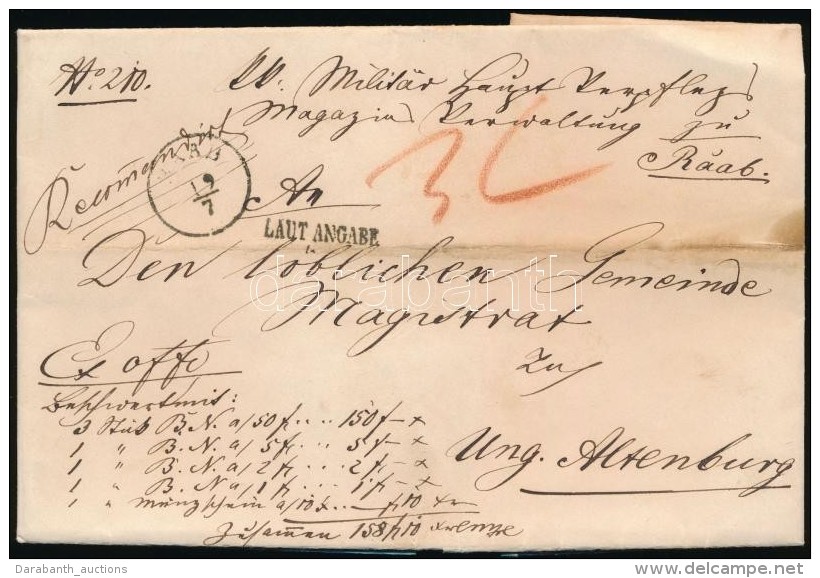 No. 210.
KK. Militär Haupt Verpflegs
Magazin Verwaltung zu
Raab.
Recommandirt
RAAB
19/7
An
LAUT ANGABE
Den löblichen Gemeinde
Magistrat
zu
Ung. Altenburg
Ex offo
Beschwert mit:
3 Stük B. N. a/ 50 f. .. .. 150 f – x
1 " B. N. a/ 5 f. . .. 5 f – x
1 " B. N. a/ 2 f. . .. 2 f – x
1 " B. N. a/ 1 f. . .. 1 f – x
1 " Münzschein a/ 10 x. .. – f 10 xr
Zusammen 158 f 10 Kreuze
darabanth
Darabanth_auctions
delcampe.net